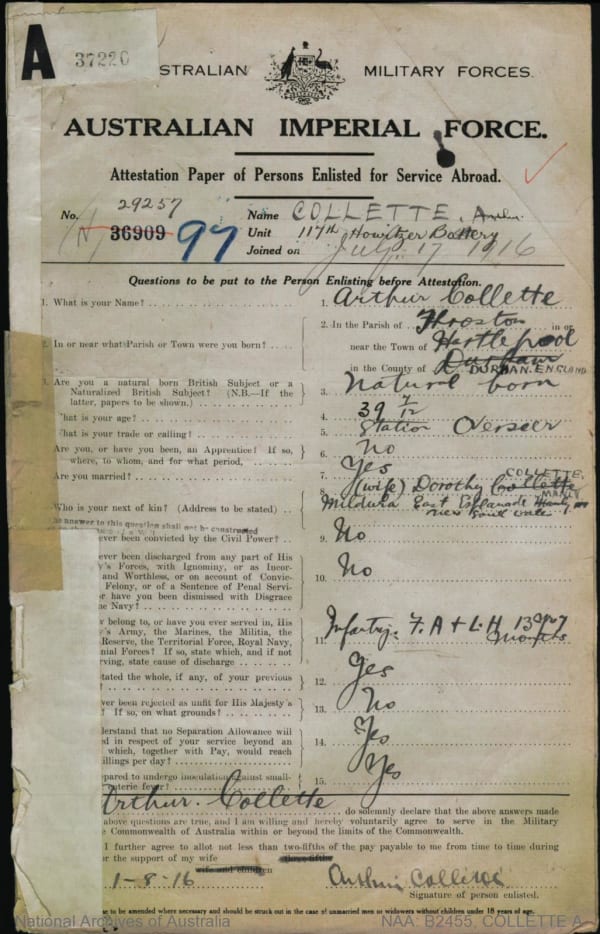 A
37220
STRALIAN MILITARY FORCES.
AUSTRALIAN IMPERIAL FORCE.
Attestation Paper of Persons Enlisted for Service Abroad.
No. 29257 Name COLLETTE, Arthur
(N) 36909 97 Unit 117th Howitzer Battery
Joined on July 17 1916
Questions to be put to the Person Enlisting before Attestation.
1. What is your Name? 1. Arthur Collette
2. In or near what Parish or Town were you born? 2. In the Parish of Throston in or
near the Town of Hartlepool
in the County of Durham DURHAN. ENGLAND
3. Are you a natural born British Subject or a
Naturalized British Subject? (N.B.—If the
latter, papers to be shown.) 3. Natural born
What is your age? 4. 39 7/12
What is your trade or calling? 5. Station Overseer
Are you, or have you been, an Apprentice? If so,
where, to whom, and for what period, 6. No
Are you married? 7. Yes
Who is your next of kin? (Address to be stated) 8. (wife) Dorothy Collette COLLETTE,
Mildura East Esplanade Manly MANLY
New South Wales
he answer to this question shall not be construed
ever been convicted by the Civil Power? 9. No
ever been discharged from any part of His
y's Forces, with Ignominy, or as Incor-
and Worthless, or on account of Convic-
Felony, or of a Sentence of Penal Servi-
r have you been dismissed with Disgrace
e Navy? 10. No
w belong to, or have you ever served, in His
's Army, the Marines, the Militia, the
Reserve, the Territorial Force, Royal Navy,
nial Forces? If so, state which, and if not
rving, state cause of discharge 11. Infantry, F. A & L. H 13 yrs 7
months
tated the whole, if any, of your previous
? 12. Yes
ver been rejected as unfit for His Majesty's
? If so, on what grounds? 13. No
derstand that no Separation Allowance will
d in respect of your service beyond an
which, together with Pay, would reach
illings per day? 14. Yes
epared to undergo inoculation against small-
nteric fever? 15. Yes
Arthur. Collette do solemnly declare that the above answers made
above questions are true, and I am willing and hereby voluntarily agree to serve in the Military
e Commonwealth of Australia within or beyond the limits of the Commonwealth.
I further agree to allot not less than two-fifths of the pay payable to me from time to time during
or the support of my wife
1-8-16 Arthur Collette
Signature of person enlisted.
se to be amended where necessary and should be struck out in the case of unmarried men or widowers without children under 18 years of age.
National Archives of Australia NAA: B2455, COLLETTE A